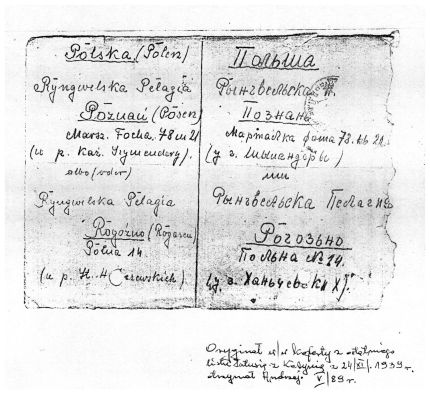 Polska (Polen)
Ryngwelska Pelagia
Poznań (Posen)
Marsz. Focha. 78 m 21
(u p. Kaź. Szymendery).
albo (oder)
Ryngwelska Pelagia
Rogoźno (Rogasen)
Polna 14
(u p. H.
Польша
Рынгвельска П.
Познань
78. кв 21.
(у г. Шымандеры)
или
Рынгвельска Пелагия
Рогозьно
Польна № 14.
(у г. Ханьчевски Х).
Oryginał w/w koperty z ostatniego
listu Tatusia z Kozielska z 24/XI. 1939 r.
otrzymał Andrzej. V/89 r.